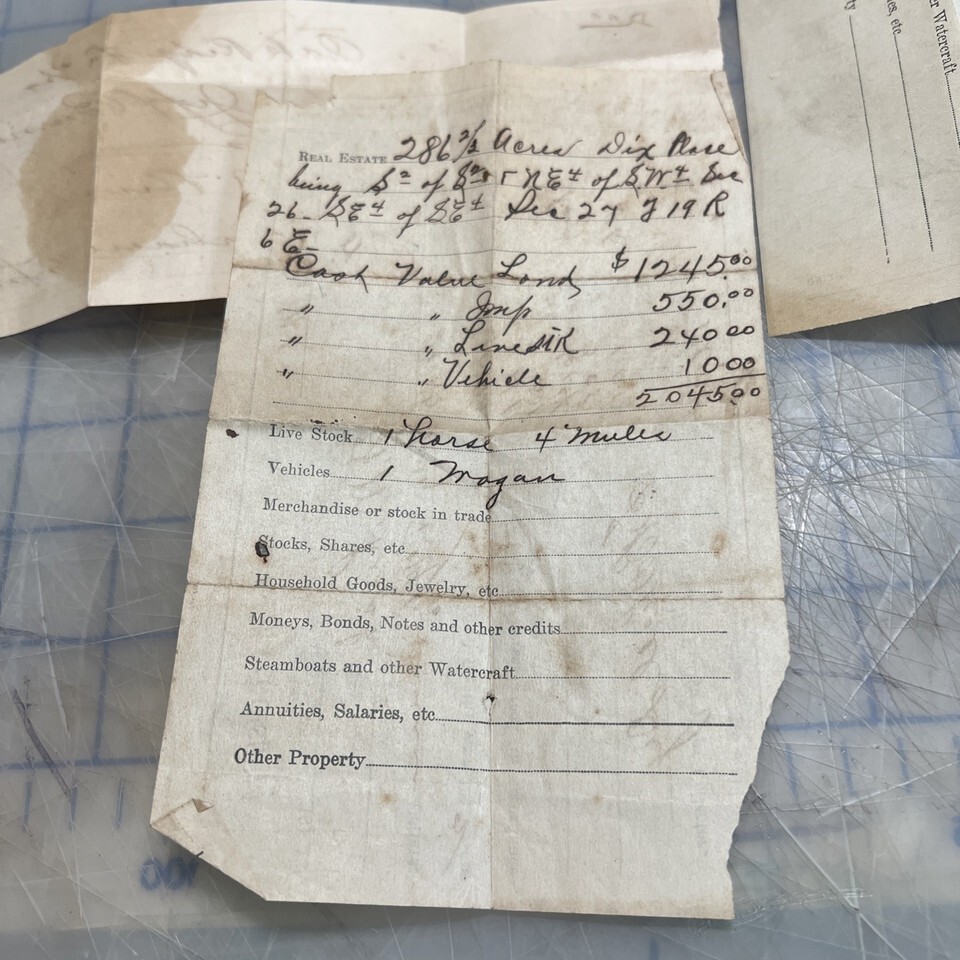 REAL ESTATE 286 2/3 Acres Dix Place
being S 2 of S 2 & NE 4 of SW 4 Sec
26 - SE 4 of SE 4 Sec 27 T 19 R
6 E -
Cash Value Land $ 1245.00
" " Imp 550.00
" " Livestk 240 00
" " Vehicle 10 00
2045.00
Live Stock 1 horse 4 mules
Vehicles 1 Wagan
Merchandise or stock in trade
Stocks, Shares, etc
Household Goods, Jewelry, etc
Moneys, Bonds, Notes and other credits
Steamboats and other Watercraft
Annuities, Salaries, etc
Other Property
er Watercraft
es, etc
ty